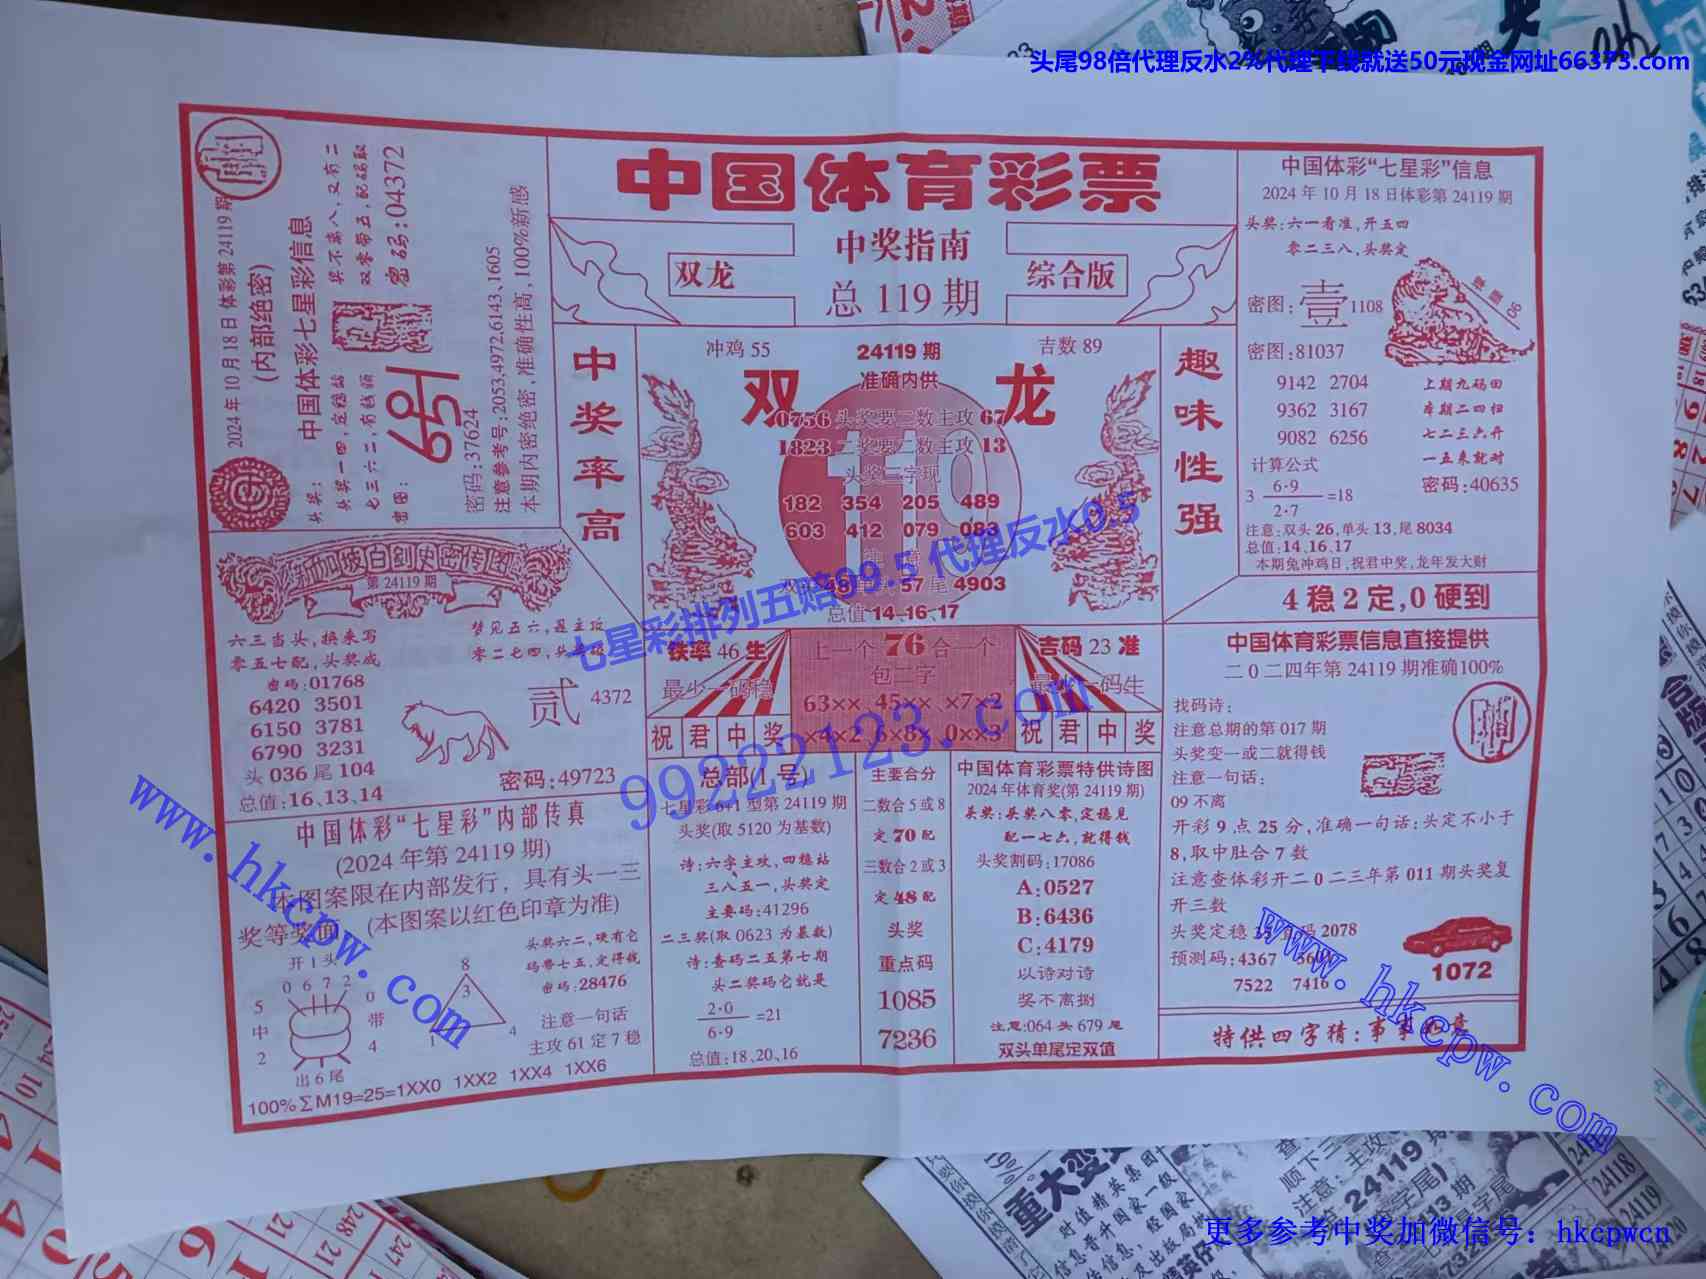 头尾98倍代理反水2%代理下线就送50元现金网址66373.com
中国体育彩票
中奖指南
双龙
综合版
总 119 期
2024 年 10 月 18 日 体彩第 24119 期
(内部绝密)
中国体彩七星彩信息
头奖:
头奖一四,定稳站
七三六二,有钱领
密图:
奖不离八,又有二
双零带五,配码取
密码:04372
密码:37624
注意参考号:2053,4972,6143,1605
本期内密绝密,准确性高,100%新感
中奖率高
冲鸡 55
24119 期
吉数 89
准确内供
双
龙
0756 头奖要二数主攻 67
1823 二奖要二数主攻 13
头奖三字现
182 354 205 489
603 412 079 083
48
57 尾 4903
总值 14、16、17
趣味性强
中国体彩“七星彩”信息
2024 年 10 月 18 日体彩第 24119 期
头奖:六一看准,开五四
零二三八,头奖定
密图:
壹 1108
密图:81037
9142 2704
9362 3167
9082 6256
上期九码田
本期二四归
七二三六开
一五来就对
密码:40635
计算公式
3 6·9/2·7 =18
注意:双头 26,单头 13,尾 8034
总值:14、16、17
本期兔冲鸡日,祝君中奖,龙年发大财
4 稳 2 定,0 硬到
第 24119 期
六三当头,换来写
零五七配,头奖成
密码:01768
6420 3501
6150 3781
6790 3231
头 036 尾 104
总值:16、13、14
贰 4372
密码:49723
铁率 46 生
最少一码稳
祝君中奖
上一个 76 合一个
包二字
63×× 45×× ×7×2
×4×2 6×8× 0××3
吉码 23 准
最少一码生
祝君中奖
七星彩排列五赔99.5 代理反水0.5
99222123.com
中国体育彩票信息直接提供
二 0 二四年第 24119 期准确100%
找码诗:
注意总期的第 017 期
头奖变一或二就得钱
注意一句话:
09 不离
开彩 9 点 25 分,准确一句话:头定不小于
8,取中肚合 7 数
注意查体彩开二 0 二三年第 011 期头奖复
开三数
预测码:4367
7522 7416
1072
特供四字精:
中国体彩“七星彩”内部传真
(2024 年第 24119 期)
本图案限在内部发行，具有头一三
奖等奖面。(本图案以红色印章为准)
开 1 头
0 6 7 2
5
中
2
0
带
4
出 6 尾
8
3
1
4
头奖六二,硬有仑
码带七五,定得钱
密码:28476
注意一句话
主攻 61 定 7 稳
100%∑M19=25=1XX0 1XX2 1XX4 1XX6
总部(1 号)
七星彩 6+1 型第 24119 期
头奖(取 5120 为基数)
诗:六字主攻,四稳站
三八五一,头奖定
主要码:41296
二三奖(取 0623 为基数)
诗:查码二五第七期
头二奖码仑就是
2·0/6·9 =21
总值:18、20、16
主要合分
二数合 5 或 8
定 70 配
三数合 2 或 3
定 48 配
头奖
重点码
1085
7236
中国体育彩票特供诗图
2024 年体育奖(第 24119 期)
头奖:头奖八零,定稳见
配一七六,就得钱
头奖割码:17086
A:0527
B:6436
C:4179
以诗对诗
奖不离捌
注意:064 头 679 尾
双头单尾定双值
www.hkcpw.com
www.hkcpw.com
更多参考中奖加微信号：hkcpwcn